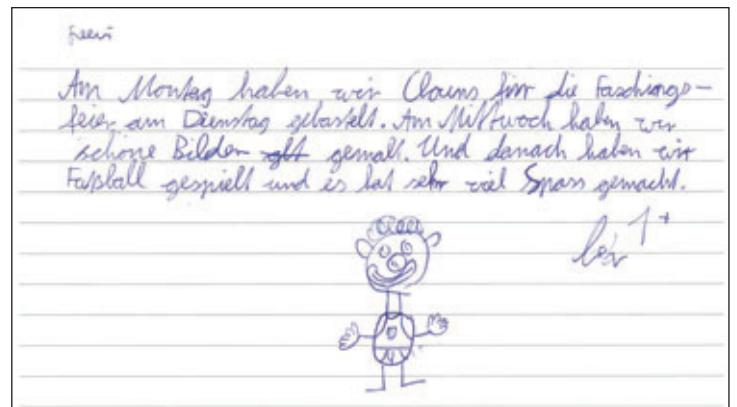 Am Montag haben wir Clauns für die Faschings-
feier am Dienstag gebastelt. Am Mittwoch haben wir
schöne Bilder gemalt. Und danach haben wir
Fußball gespielt und es hat sehr viel Spass gemacht.
1+